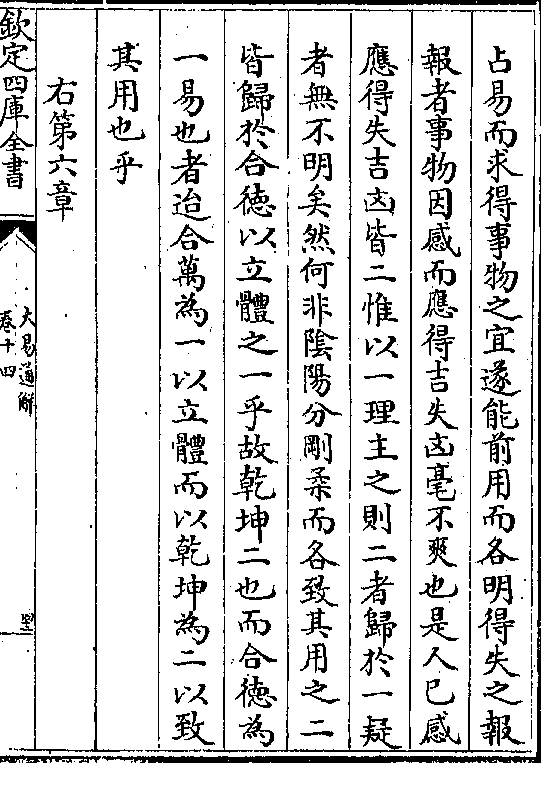 占易而求得事物之宜遂能前用而各明得失之報
報者事物因感而應得吉失凶毫不爽也是人已感
應得失吉凶皆二惟以一理主之則二者歸於一疑
者無不明矣然何非隂陽分剛柔而各致其用之二
皆歸於合德以立體之一乎故乾坤二也而合德為
一易也者迨合萬為一以立體而以乾坤為二以致
其用也乎
右第六章
欽定四庫全書
大易通解
卷十四